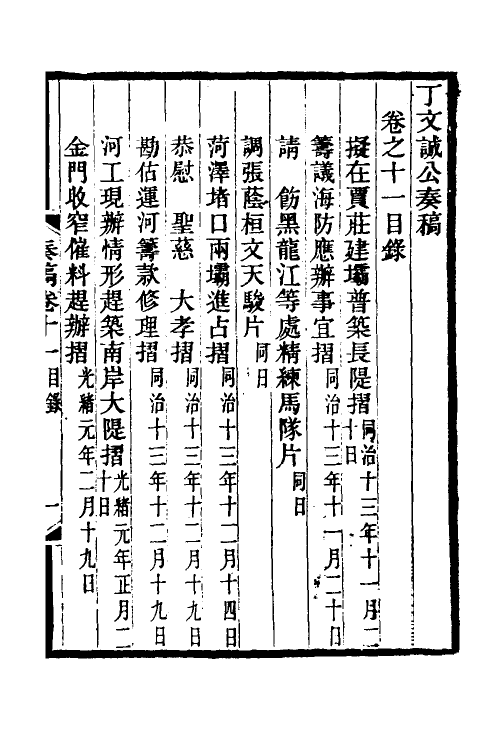 丁文誠公奏稿
卷之十一目錄
擬在賈莊建壩普築長隄摺同治十三年十一月二十日
籌議海防應辦事宜摺同治十三年十一月二十日
請　飭黑龍江等處精練馬隊片同日
調張蔭桓文天駿片同日
菏澤堵口兩壩進占摺同治十三年十二月十四日
恭慰　聖慈　大孝摺同治十三年十二月十九日
勘估運河籌款修理摺同治十三年十二月十九日
河工現辦情形趕築南岸大隄摺光緒元年正月二十日
金門收窄催料趕辦摺光緒元年二月十九日
奏稿卷十一目錄　一